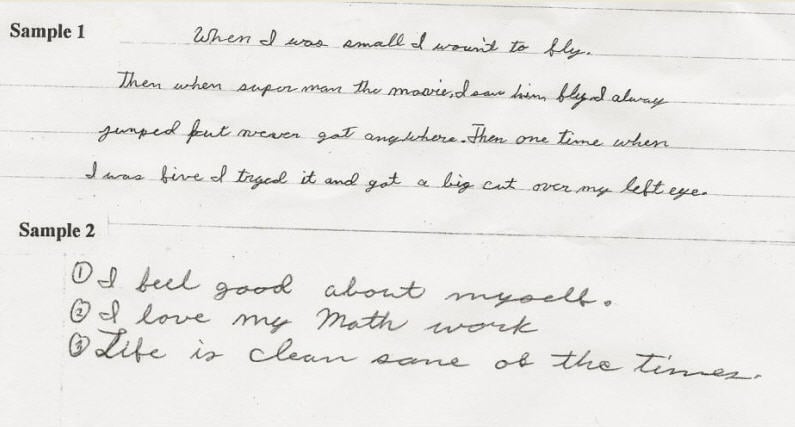 Sample 1
When I was small I wount to fly.
Then when super man the movie, I saw him fly I alway
jumped but never got anywhere. Then one time when
I was five I tryed it and got a big cut over my left eye.
Sample 2
① I feel good about myself.
② I love my Math work
③ Life is clean sane of the times.